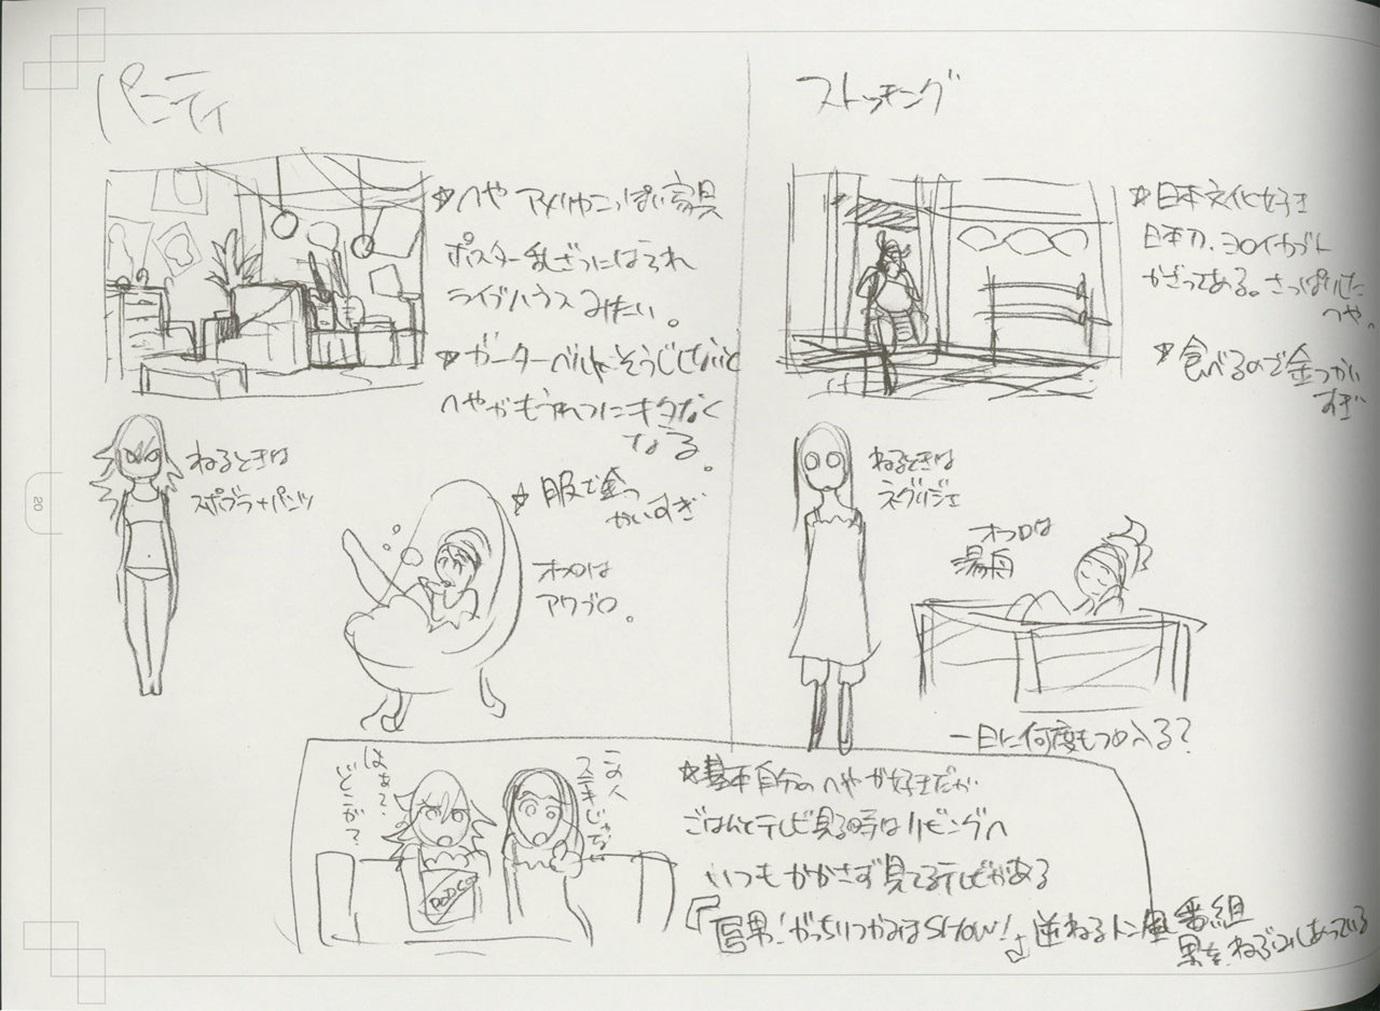 パンティ
☆へや アメリカンっぽい家具
ポスター乱ざつにはられ
ライブハウスみたい。
☆ガーターベルトがそうじしないと
へやがもうれつにキタなく
なる。
ねるときは
スポブラ+パンツ
☆服で金つ
かいすぎ
オフロは
アワブロ。
ストッキング
☆日本文化好き
日本刀、ヨロイカブト
かざってある。さっぱりした
へや。
☆食べるので金つかい
すぎ
ねるときは
ネグリジェ
オフロは
湯舟
一日に何度もつめ入る?
はぁ?
どこが?
この人
ステキじゃない
POPCO
☆基本自分のへやが好きだが
ごはんとテレビ見る時はリビングへ
いつもかかさず見てるテレビがある
がっちりつかみはSHOW!」逆ねるトン風番組
男をねぶみしあっている
20